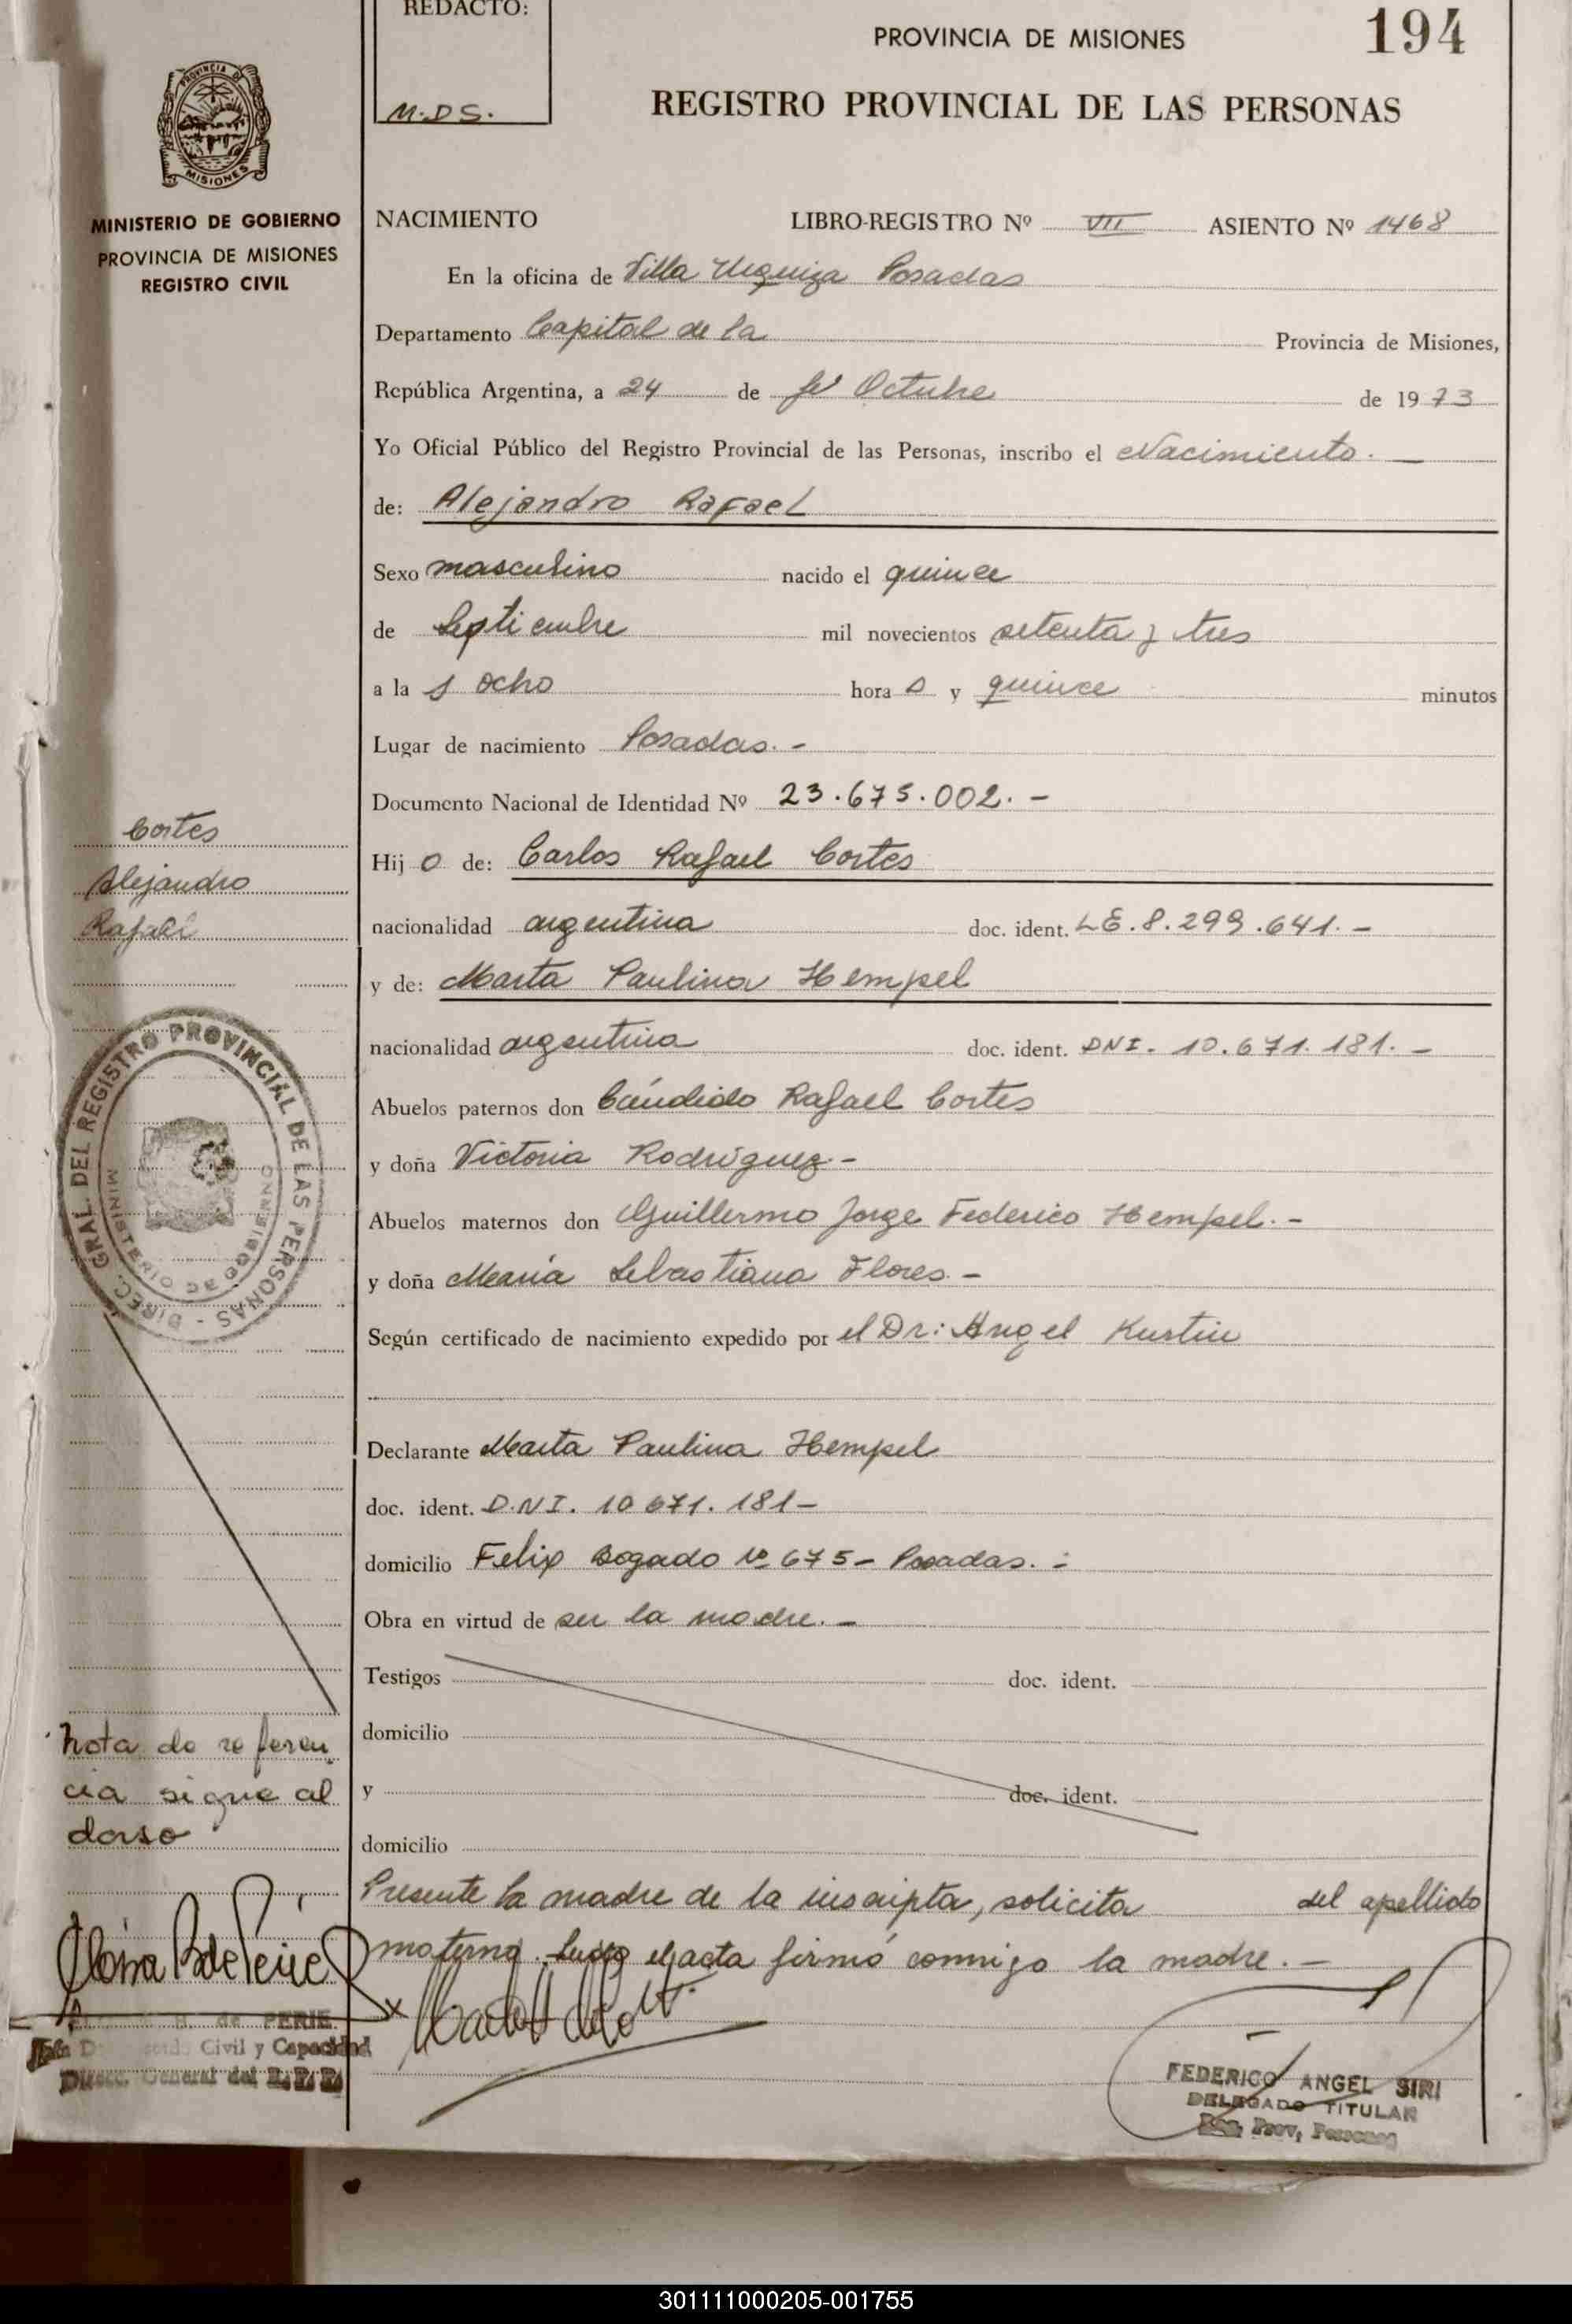 REDACTO:
M.D.S.
PROVINCIA DE MISIONES
194
REGISTRO PROVINCIAL DE LAS PERSONAS
PROVINCIA D
MISIONES
MINISTERIO DE GOBIERNO
PROVINCIA DE MISIONES
REGISTRO CIVIL
NACIMIENTO LIBRO-REGISTRO Nº VII ASIENTO Nº 1468
En la oficina de Villa Urquiza Posadas
Departamento Capital de la Provincia de Misiones,
República Argentina, a 24 de Octubre de 1973
Yo Oficial Público del Registro Provincial de las Personas, inscribo el Nacimiento. —
de: Alejandro Rafael
Sexo masculino nacido el quince
de Septiembre mil novecientos setenta y tres
a la s ocho hora s y quince minutos
Lugar de nacimiento Posadas. -
Documento Nacional de Identidad Nº 23.675.002. -
Cortes
Alejandro
Rafael
Hij o de: Carlos Rafael Cortes
nacionalidad argentina doc. ident. LE. 8.299.641. -
y de: Marta Paulina Hempel
nacionalidad argentina doc. ident. DNI. 10.671.181. -
Abuelos paternos don Cándido Rafael Cortes
y doña Victoria Rodríguez -
Abuelos maternos don Guillermo Jorge Federico Hempel. -
y doña María Sebastiana Flores. -
DIREC. GRAL. DEL REGISTRO PROVINCIAL DE LAS PERSONAS -
MINISTERIO DE GOBIERNO
Según certificado de nacimiento expedido por el Dr: Angel Kustin
Declarante Marta Paulina Hempel
doc. ident. D.N.I. 10 671. 181 -
domicilio Felix Bogado Nº 675 - Posadas. -
Obra en virtud de ser la madre. -
Testigos doc. ident.
domicilio
y doc. ident.
domicilio
nota de referen
cia sigue al
dorso
Presente la madre de la inscripta, solicita del apellido
materno. el acta firmó conmigo la madre. -
de PERIE
Civil y Capacidad
General del R.P.P.
FEDERICO ANGEL SIRI
DELEGADO TITULAR
Reg. Prov. Personas
301111000205-001755